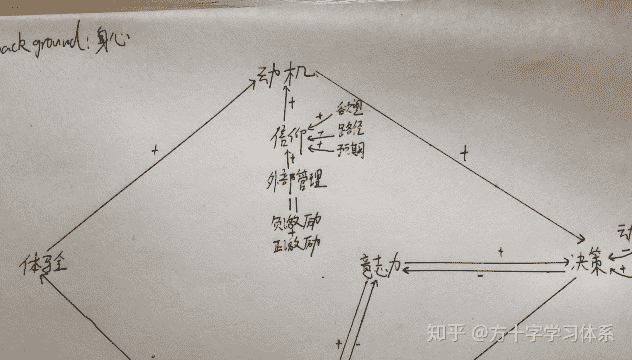 background: 身心
动机
+
+
信仰
+
欲望
+
路径
+
预期
+
+
外部管理
||
负激励
+
正激励
体验
意志力
+
-
决策
动
-
+
+
-
知乎 @方十字学习体系